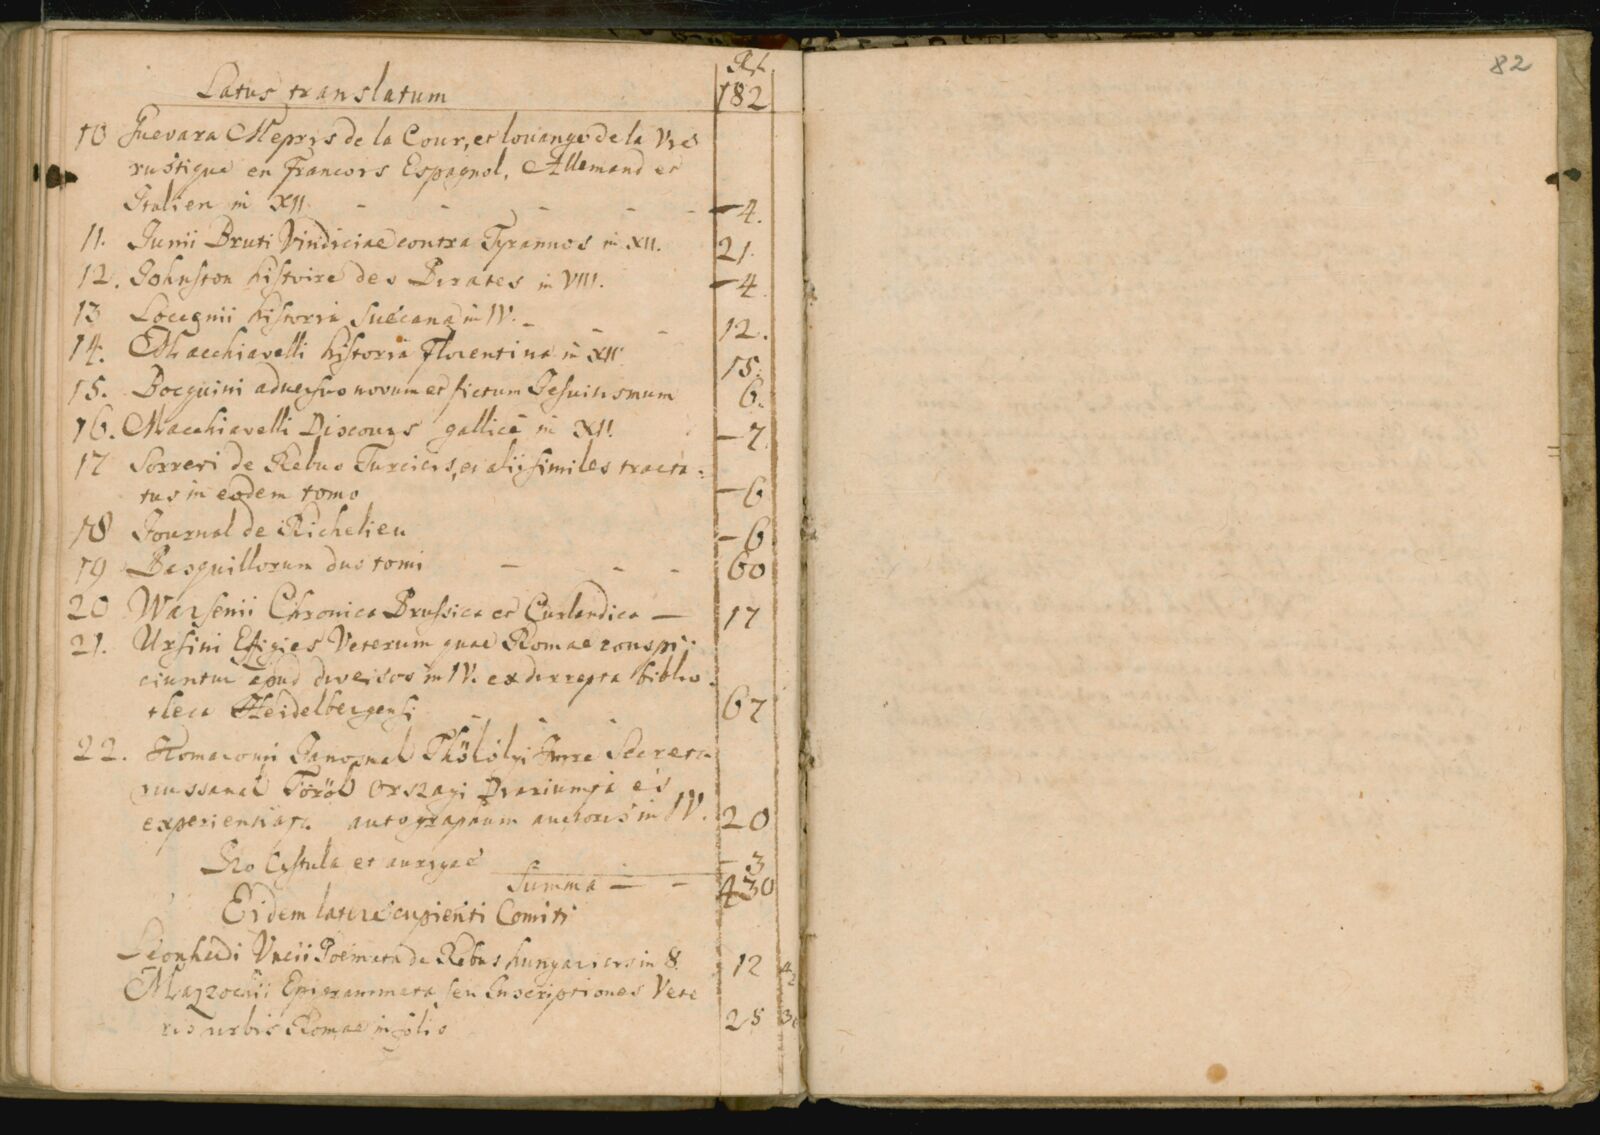 82
Rf.
Latus translatum 182
10 Guevara Mepris de la Cour, et louange de la Vie
rustique en Francois Espagnol, Allemand et
Italien in XII. - - - - - -4.
11. Junii Bruti Vindiciae contra Tyrannos in XII. 21.
12. Johnston histoire des Pirates in VIII. -4.
13 Loccenii historia Suecana in IV. - - - 12.
14. Macchiavelli historia Florentina in XII 15.
15. Bocquini adversus novum et fictum Jesuitismum 6.
16. Macchiavelli Discours gallice in XII. -7.
17 Sorreri de Rebus Turcicis, et alii similes tracta-
tus in eodem tomo -6
18 Journal de Richelieu -6.
19 Pasquillorum duo tomi - - - 60
20 Warsenii Chronica Prussica et Curlandica - 17
21. Ursini Effigies Veterum quae Romae conspi-
ciuntur apud diversos in IV. ex direpta biblio-
theca Heidelbergensi - - - 67
22. Komaromi Janosnak Thökölyi Imre Secreta-
riussanak Török Országi Diariumja és
experientiája autographum auctoris in IV. 20
Pro Cystula et aurigae - 3
Summa - - 430
Eidem latere cupienti Comiti
Leonhardi Uncii Poemata de Rebus hungaricis in 8. 12
Mazzochii Epigrammata seu Inscriptiones Vete-
ris urbis Romae in folio 25